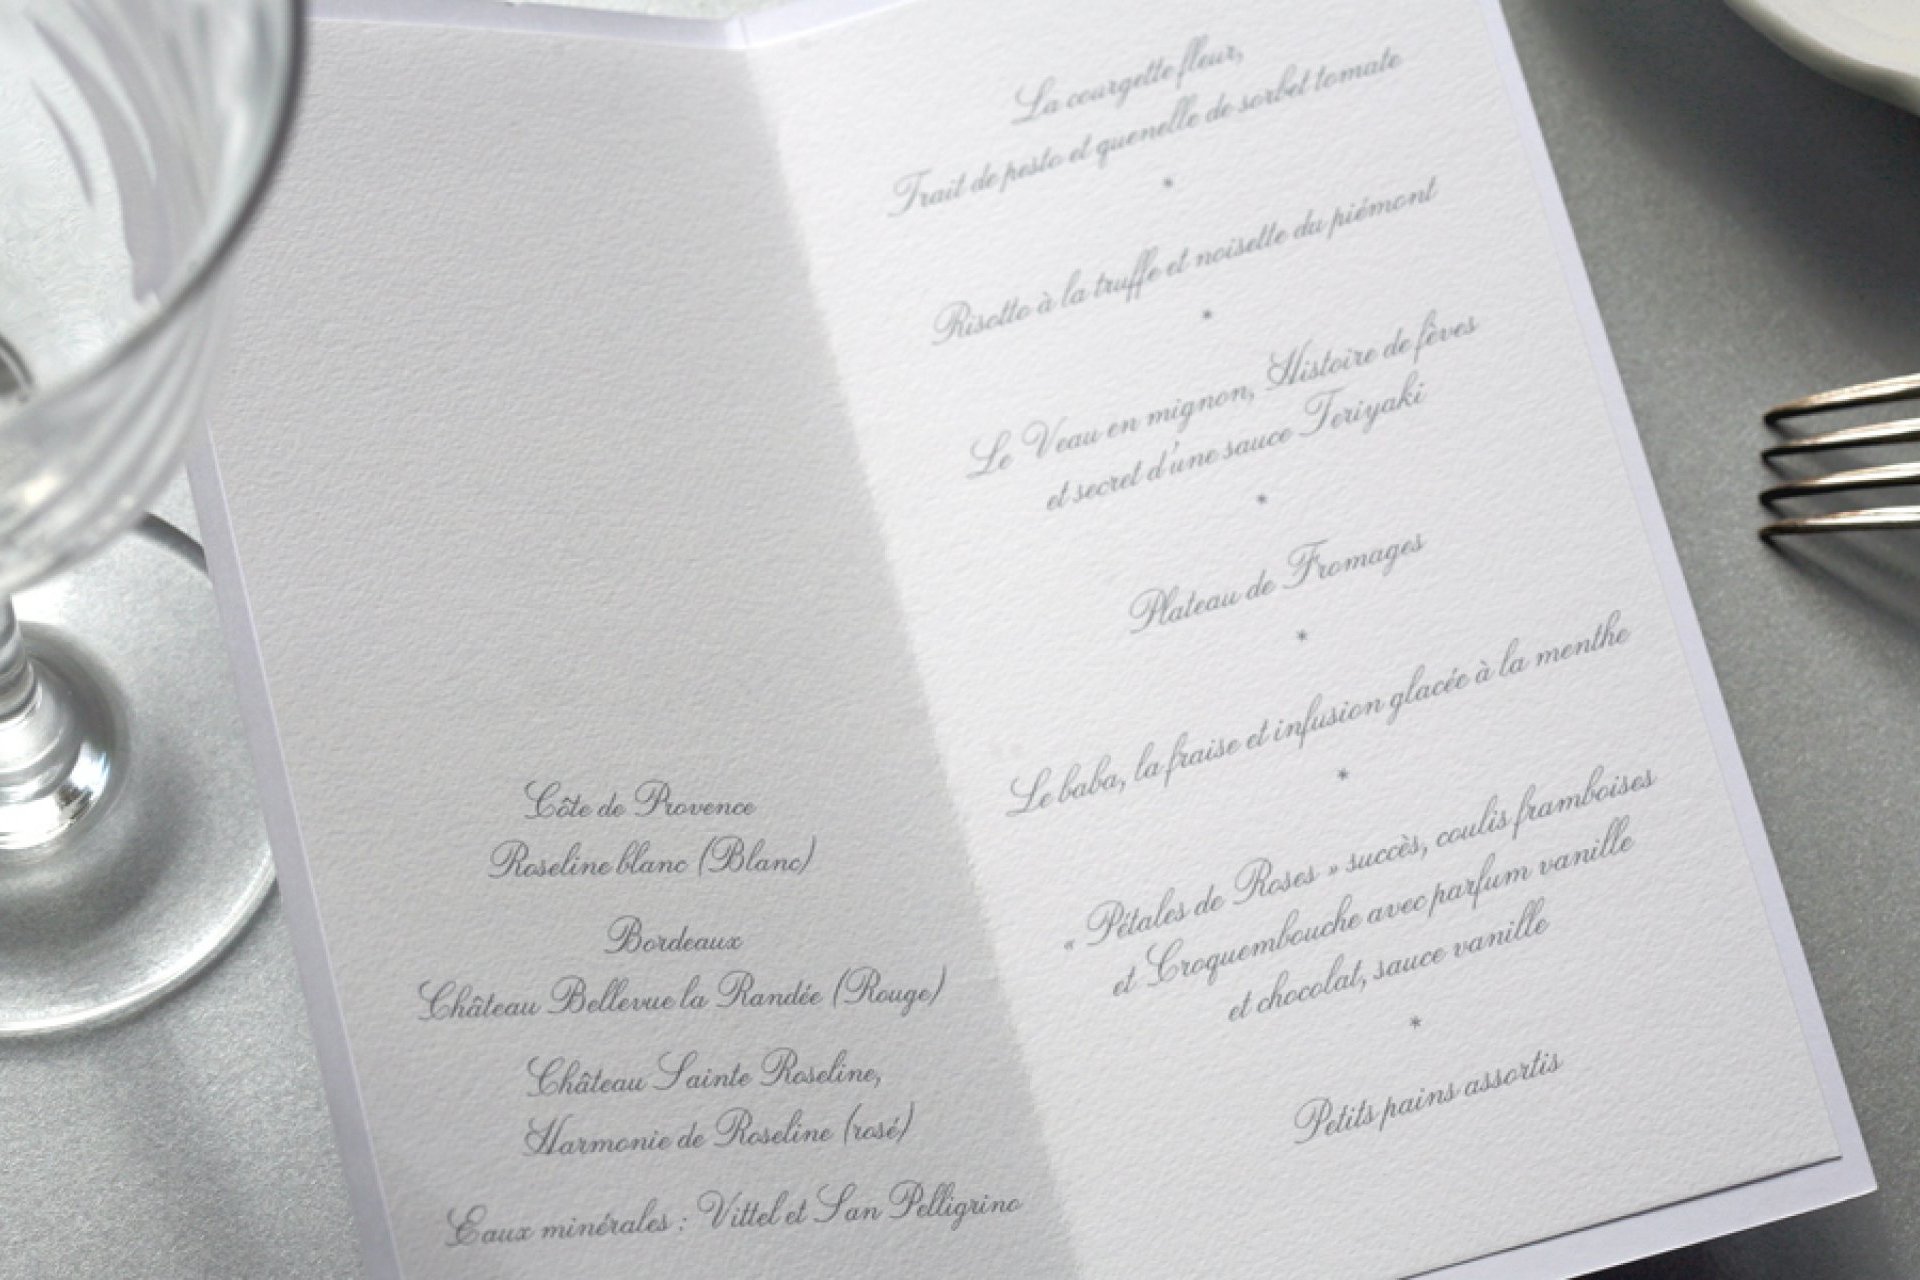 Côte de Provence
Roseline blanc (Blanc)
Bordeaux
Château Bellevue la Randée (Rouge)
Château Sainte Roseline,
Harmonie de Roseline (rosé)
Eaux minérales : Vittel et San Pelligrino
La courgette fleur,
Trait de pesto et quenelle de sorbet tomate
*
Risotto à la truffe et noisette du piémont
*
Le Veau en mignon, Histoire de fèves
et secret d'une sauce Teriyaki
*
Plateau de Fromages
*
Le baba, la fraise et infusion glacée à la menthe
*
« Pétales de Roses » succès, coulis framboises
et Croquembouche avec parfum vanille
et chocolat, sauce vanille
*
Petits pains assortis